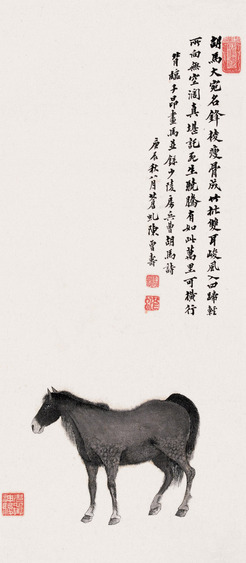 胡馬大宛名鋒棱瘦骨成竹批雙耳峻風入四蹄輕
所向無空闊真堪託死生驍騰有如此萬里可橫行
背臨子昂畫馬並錄少陵房兵曹胡馬詩
庚辰秋八月蒼虬陳曾壽